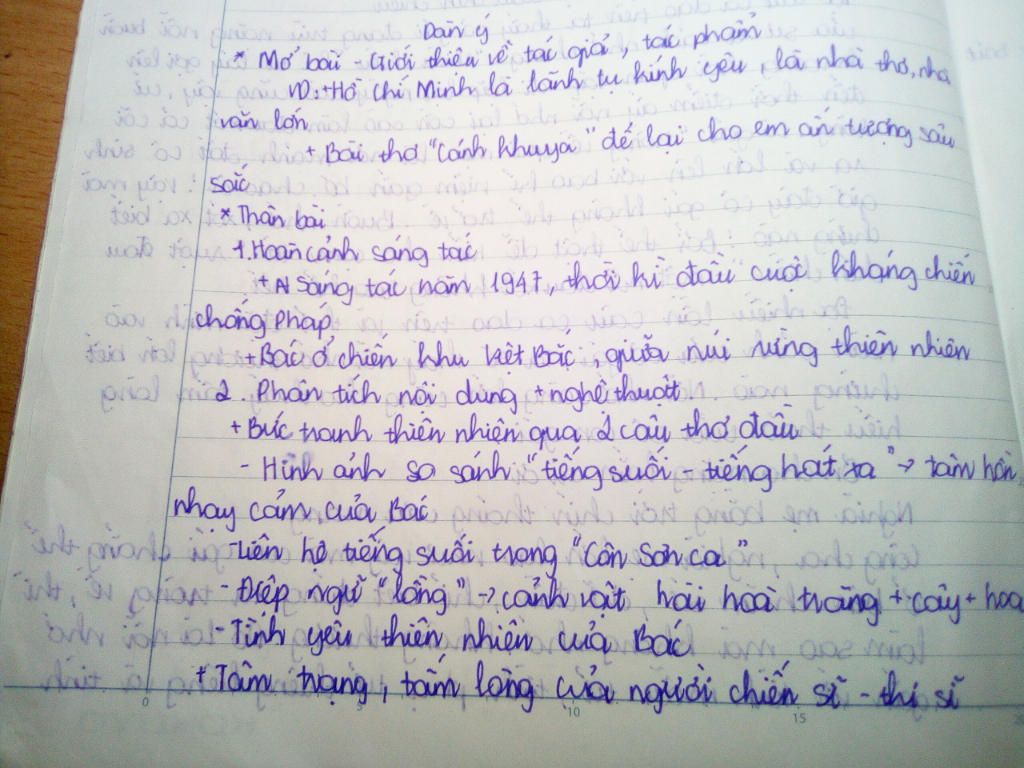 Dàn ý
* Mở bài - Giới thiệu về tác giả, tác phẩm
VD: + Hồ Chí Minh là lãnh tụ kính yêu, là nhà thơ, nhà
văn lớn
+ Bài thơ "Cảnh khuya" để lại cho em ấn tượng sâu
sắc
* Thân bài
1. Hoàn cảnh sáng tác
+ Sáng tác năm 1947, thời kì đầu cuộc kháng chiến
chống Pháp
+ Bác ở chiến khu Việt Bắc, giữa núi rừng thiên nhiên
2. Phân tích nội dung + nghệ thuật
+ Bức tranh thiên nhiên qua 2 câu thơ đầu
- Hình ảnh so sánh "tiếng suối - tiếng hát xa" → tâm hồn
nhạy cảm của Bác
- Liên hệ tiếng suối trong "Côn Sơn ca"
- Điệp ngữ "lồng" → cảnh vật hài hoà trăng + cây + hoa
- Tình yêu thiên nhiên của Bác
+ Tâm trạng, tấm lòng của người chiến sĩ - thi sĩ
0 10 15